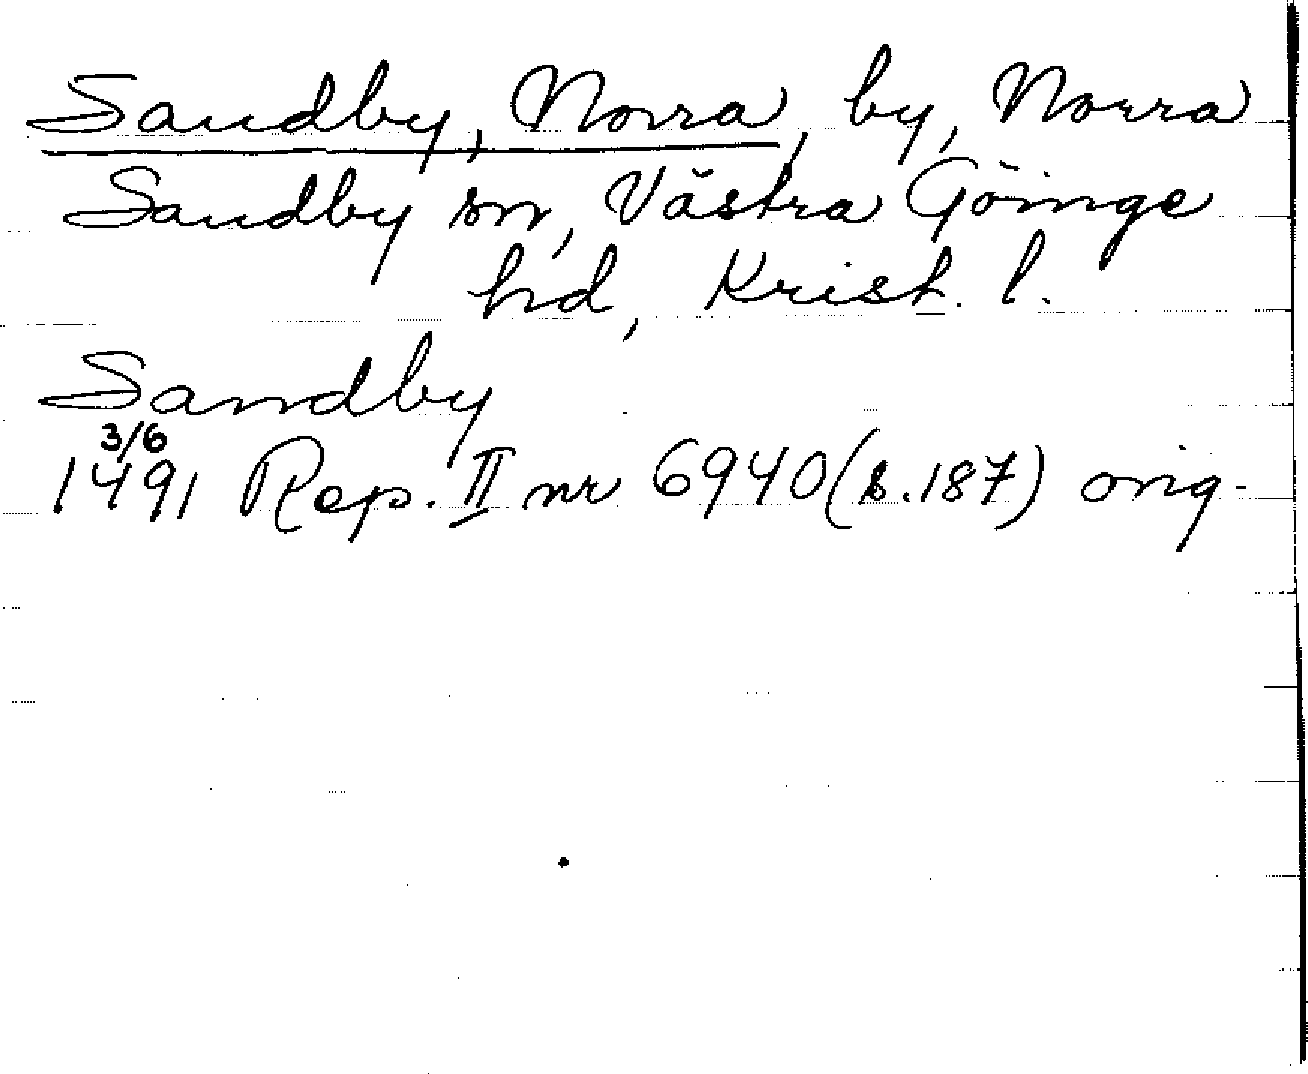 Sandby, Norra, by, Norra
Sandby sn, Västra Göinge
hd, Krist. l.
Sandby
3/6
1491 Rep. II nr 6940 (s. 187) orig.